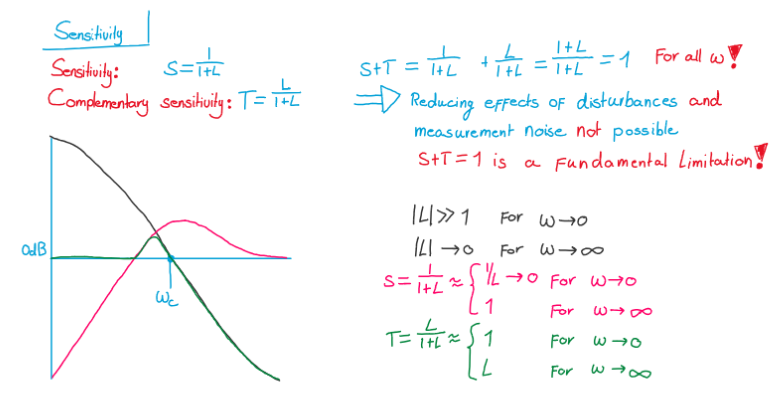 Sensitivity
Sensitivity: S = 1/(1+L)
Complementary sensitivity: T = L/(1+L)
S+T = 1/(1+L) + L/(1+L) = (1+L)/(1+L) = 1 For all ω!
⇒ Reducing effects of disturbances and
measurement noise not possible
S+T=1 is a Fundamental Limitation!
0dB
ωc
|L| ≫ 1 For ω→0
|L| → 0 For ω→∞
S = 1/(1+L) ≈ { 1/L → 0 For ω→0
1 For ω→∞
T = L/(1+L) ≈ { 1 For ω→0
L For ω→∞